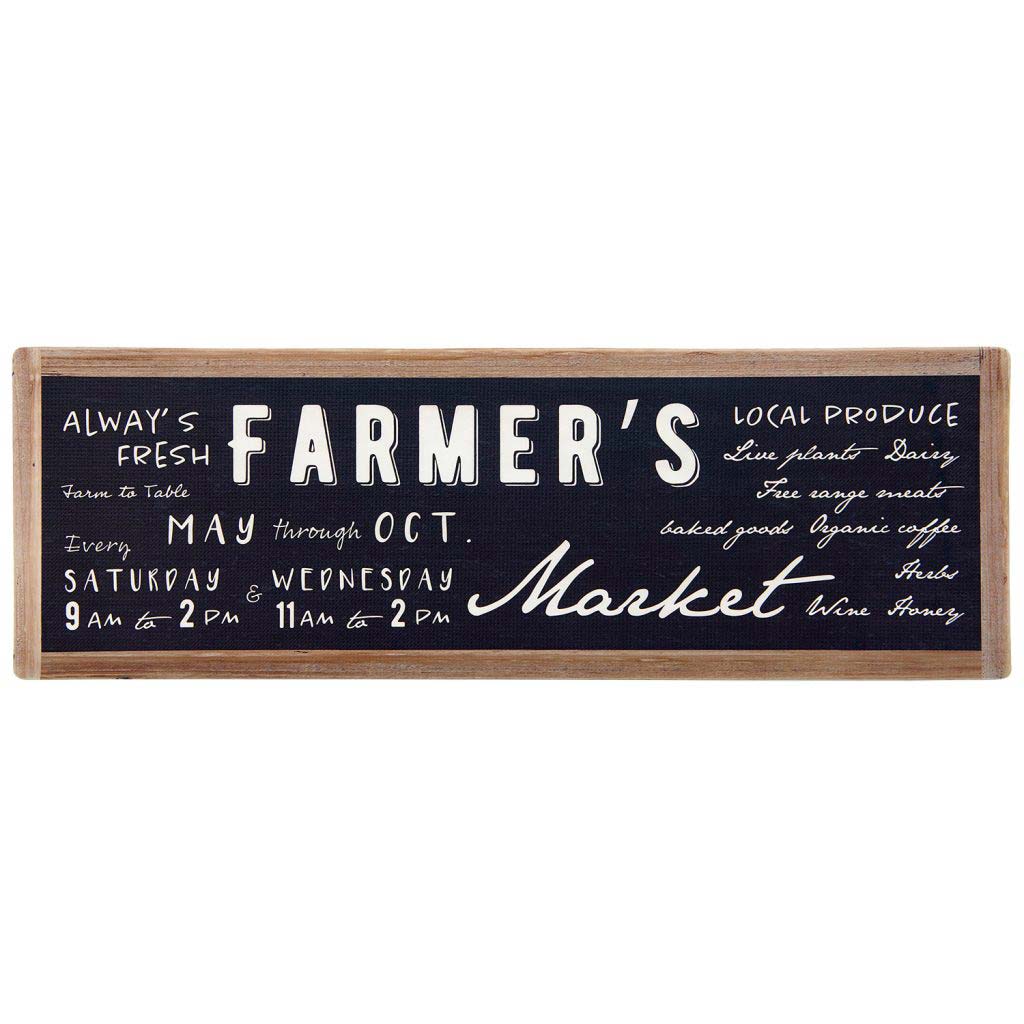 ALWAY'S
FRESH
FARMER'S
Farm to Table
Every
MAY through OCT.
SATURDAY & WEDNESDAY
9 AM to 2 PM 11 AM to 2 PM
Market
LOCAL PRODUCE
Live plants Dairy
Free range meats
baked goods Organic coffee
Herbs
Wine Honey